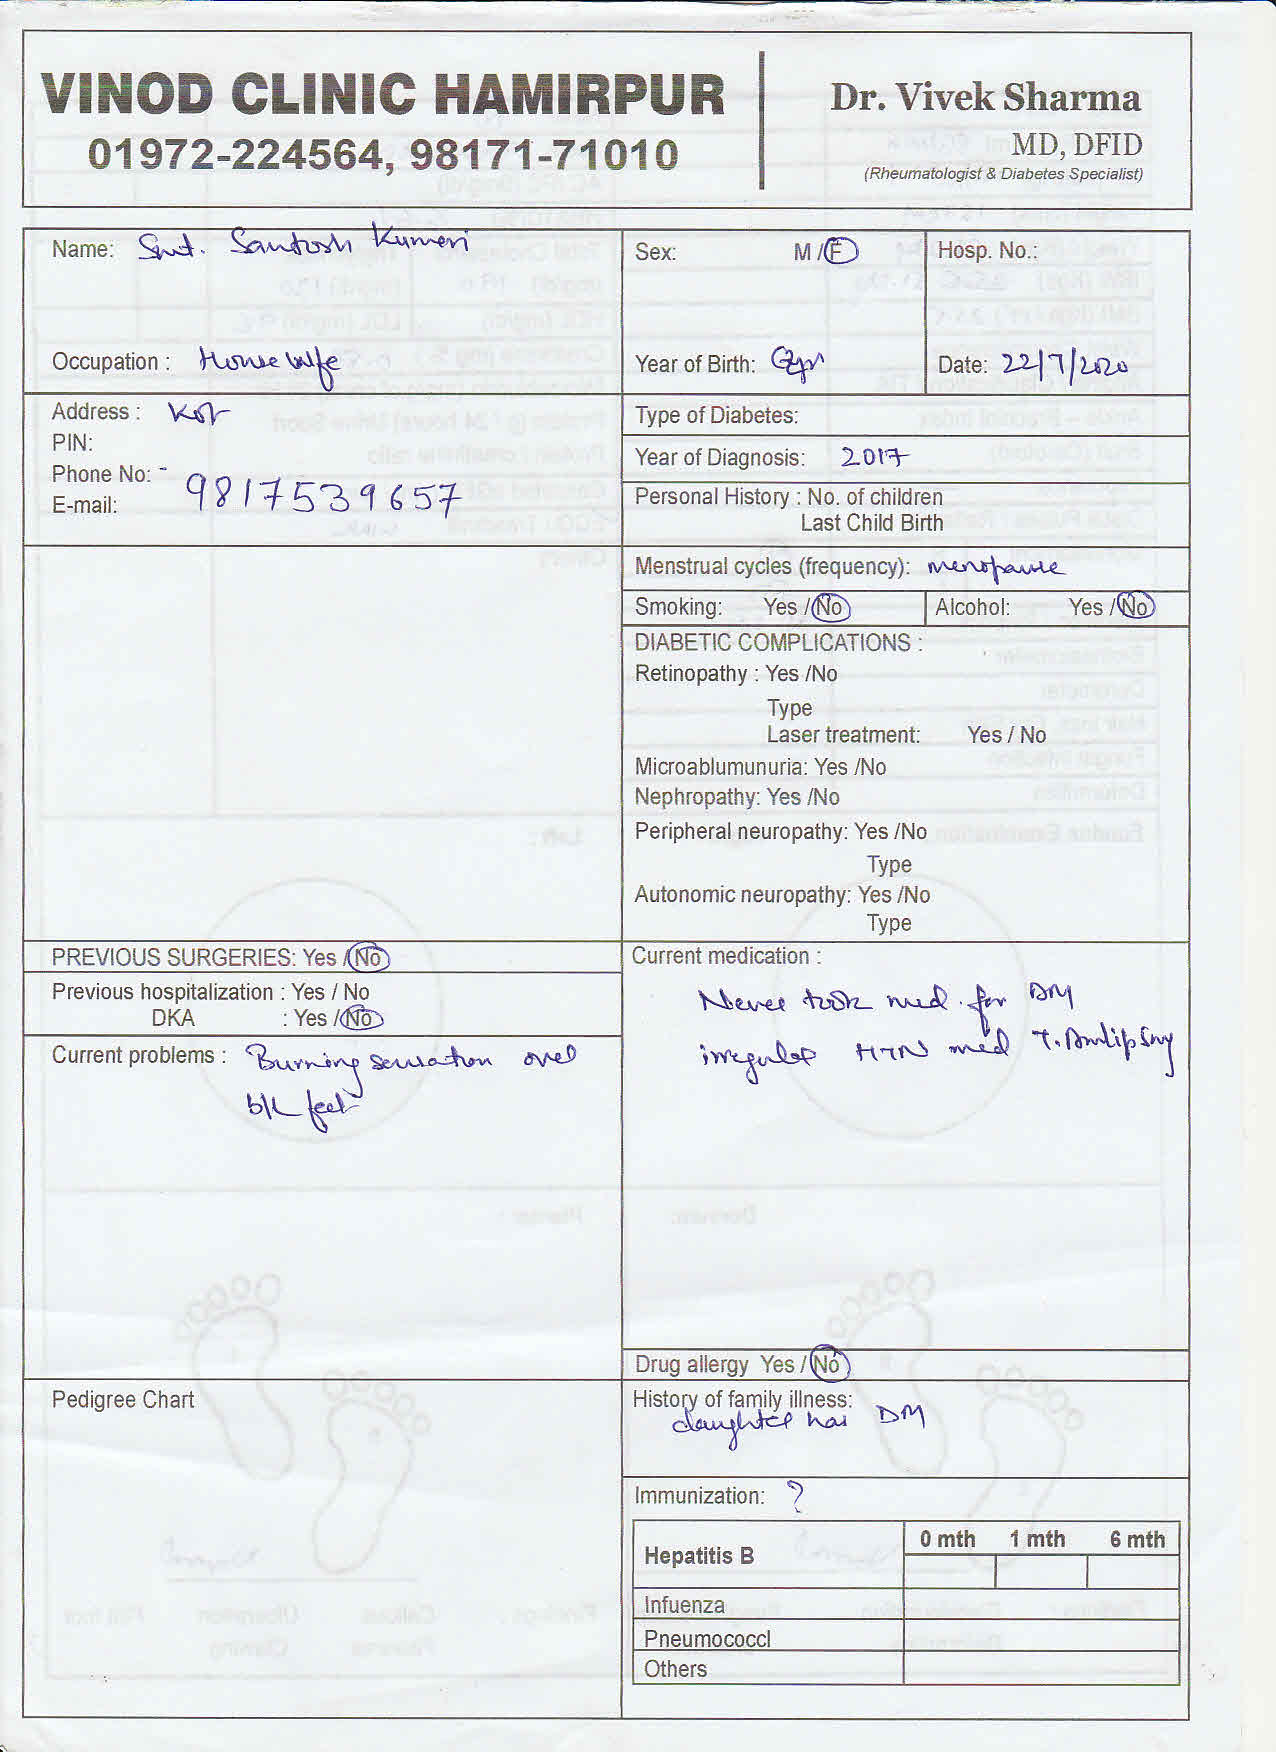 VINOD CLINIC HAMIRPUR
01972-224564, 98171-71010
Dr. Vivek Sharma
MD, DFID
(Rheumatologist & Diabetes Specialist)
Name: Smt. Santosh Kumari
Sex: M / F
Hosp. No.:
Occupation : House wife
Year of Birth:
Date: 22/7/2020
Address : Kot
PIN:
Phone No: -
E-mail: 9817539657
Type of Diabetes:
Year of Diagnosis: 2017
Personal History : No. of children
Last Child Birth
Menstrual cycles (frequency): menopause
Smoking: Yes / No
Alcohol: Yes / No
DIABETIC COMPLICATIONS :
Retinopathy : Yes /No
Type
Laser treatment: Yes / No
Microablumunuria: Yes /No
Nephropathy: Yes /No
Peripheral neuropathy: Yes /No
Type
Autonomic neuropathy: Yes /No
Type
PREVIOUS SURGERIES: Yes / No
Previous hospitalization : Yes / No
DKA : Yes / No
Current problems : Burning sensation over
b/L feet
Current medication :
Never took med. for DM
irregular HTN med T. Amlip 5mg
Drug allergy Yes / No
Pedigree Chart
History of family illness:
daughter has DM
Immunization: ?
Hepatitis B
0 mth 1 mth 6 mth
Infuenza
Pneumococcl
Others